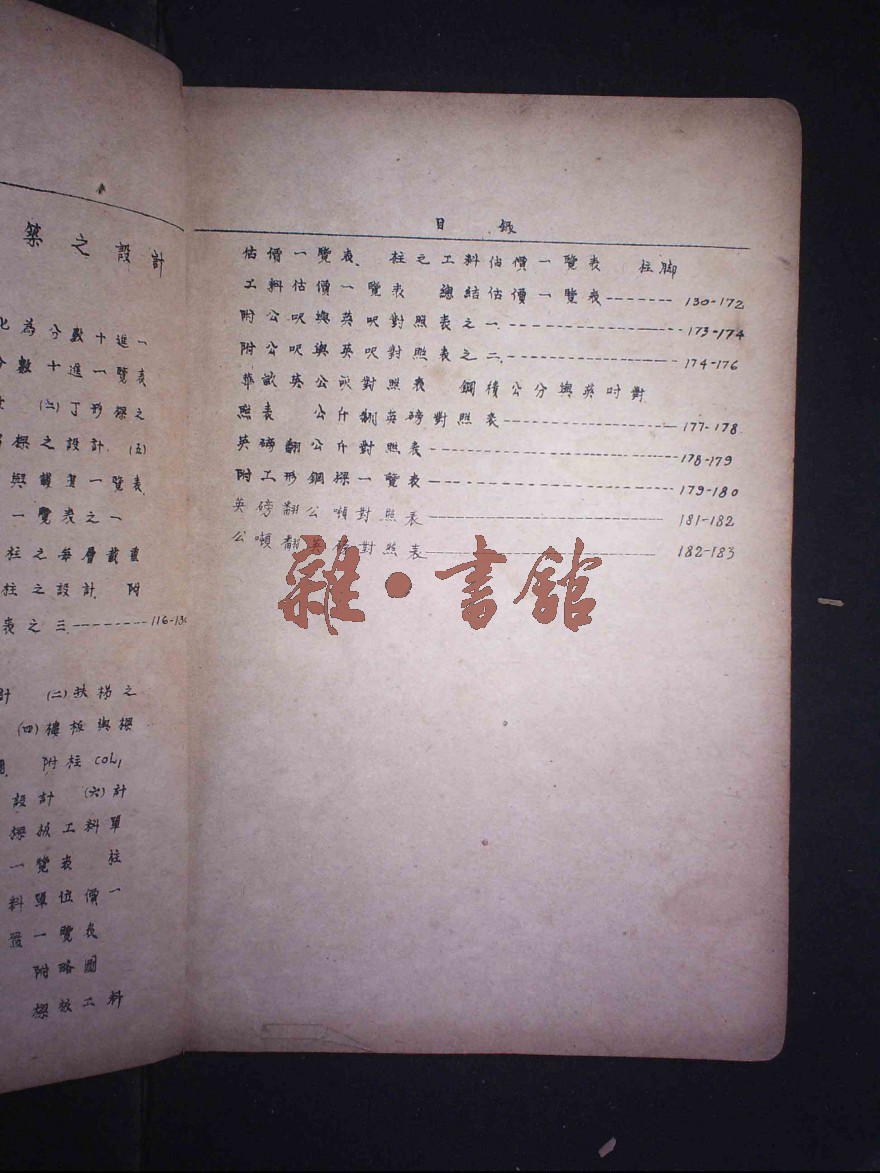 築之設計
化為分數十進一
分數十進一覽表
(二)丁形樑之
樑之設計 (五)
與載重一覽表
一覽表之一
柱之每層載重
柱之設計 附
表之三--------116-130
計 (二)扶梯之
(四)樓板與樑
附柱 col,
設計 (六)計
樑板工料單
一覽表 柱
料單位價一
一覽表
附略圖
樑板工料
目 錄
估價一覽表 柱之工料估價一覽表 柱脚
工料估價一覽表 總結估價一覽表-------130-172
附公呎與英呎對照表之一--------------------173-174
附公呎與英呎對照表之二--------------------174-176
華畝英公畝對照表 鋼積公分與英吋對
照表 公斤翻英磅對照表------------------177-178
英磅翻公斤對照表--------------------------178-179
附工形鋼樑一覽表--------------------------179-180
英磅翻公噸對照表--------------------------181-182
公噸翻英磅對照表--------------------------182-183
雜·書館